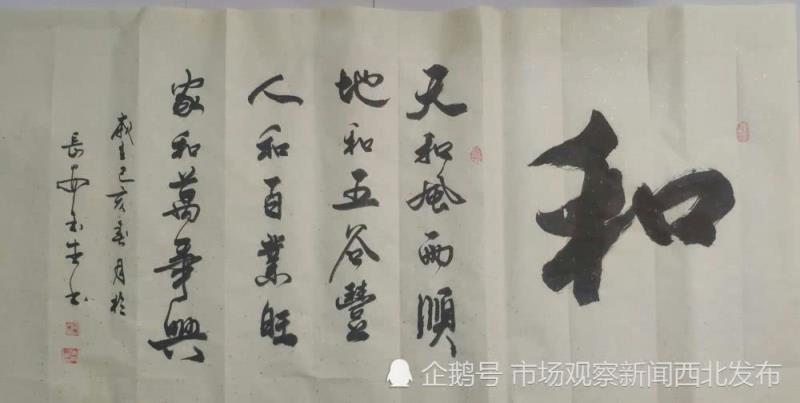 和
天和風雨順
地和五谷豐
人和百業旺
家和萬事興
歲在己亥春月於
長安
企鹅号 市场观察新闻西北发布